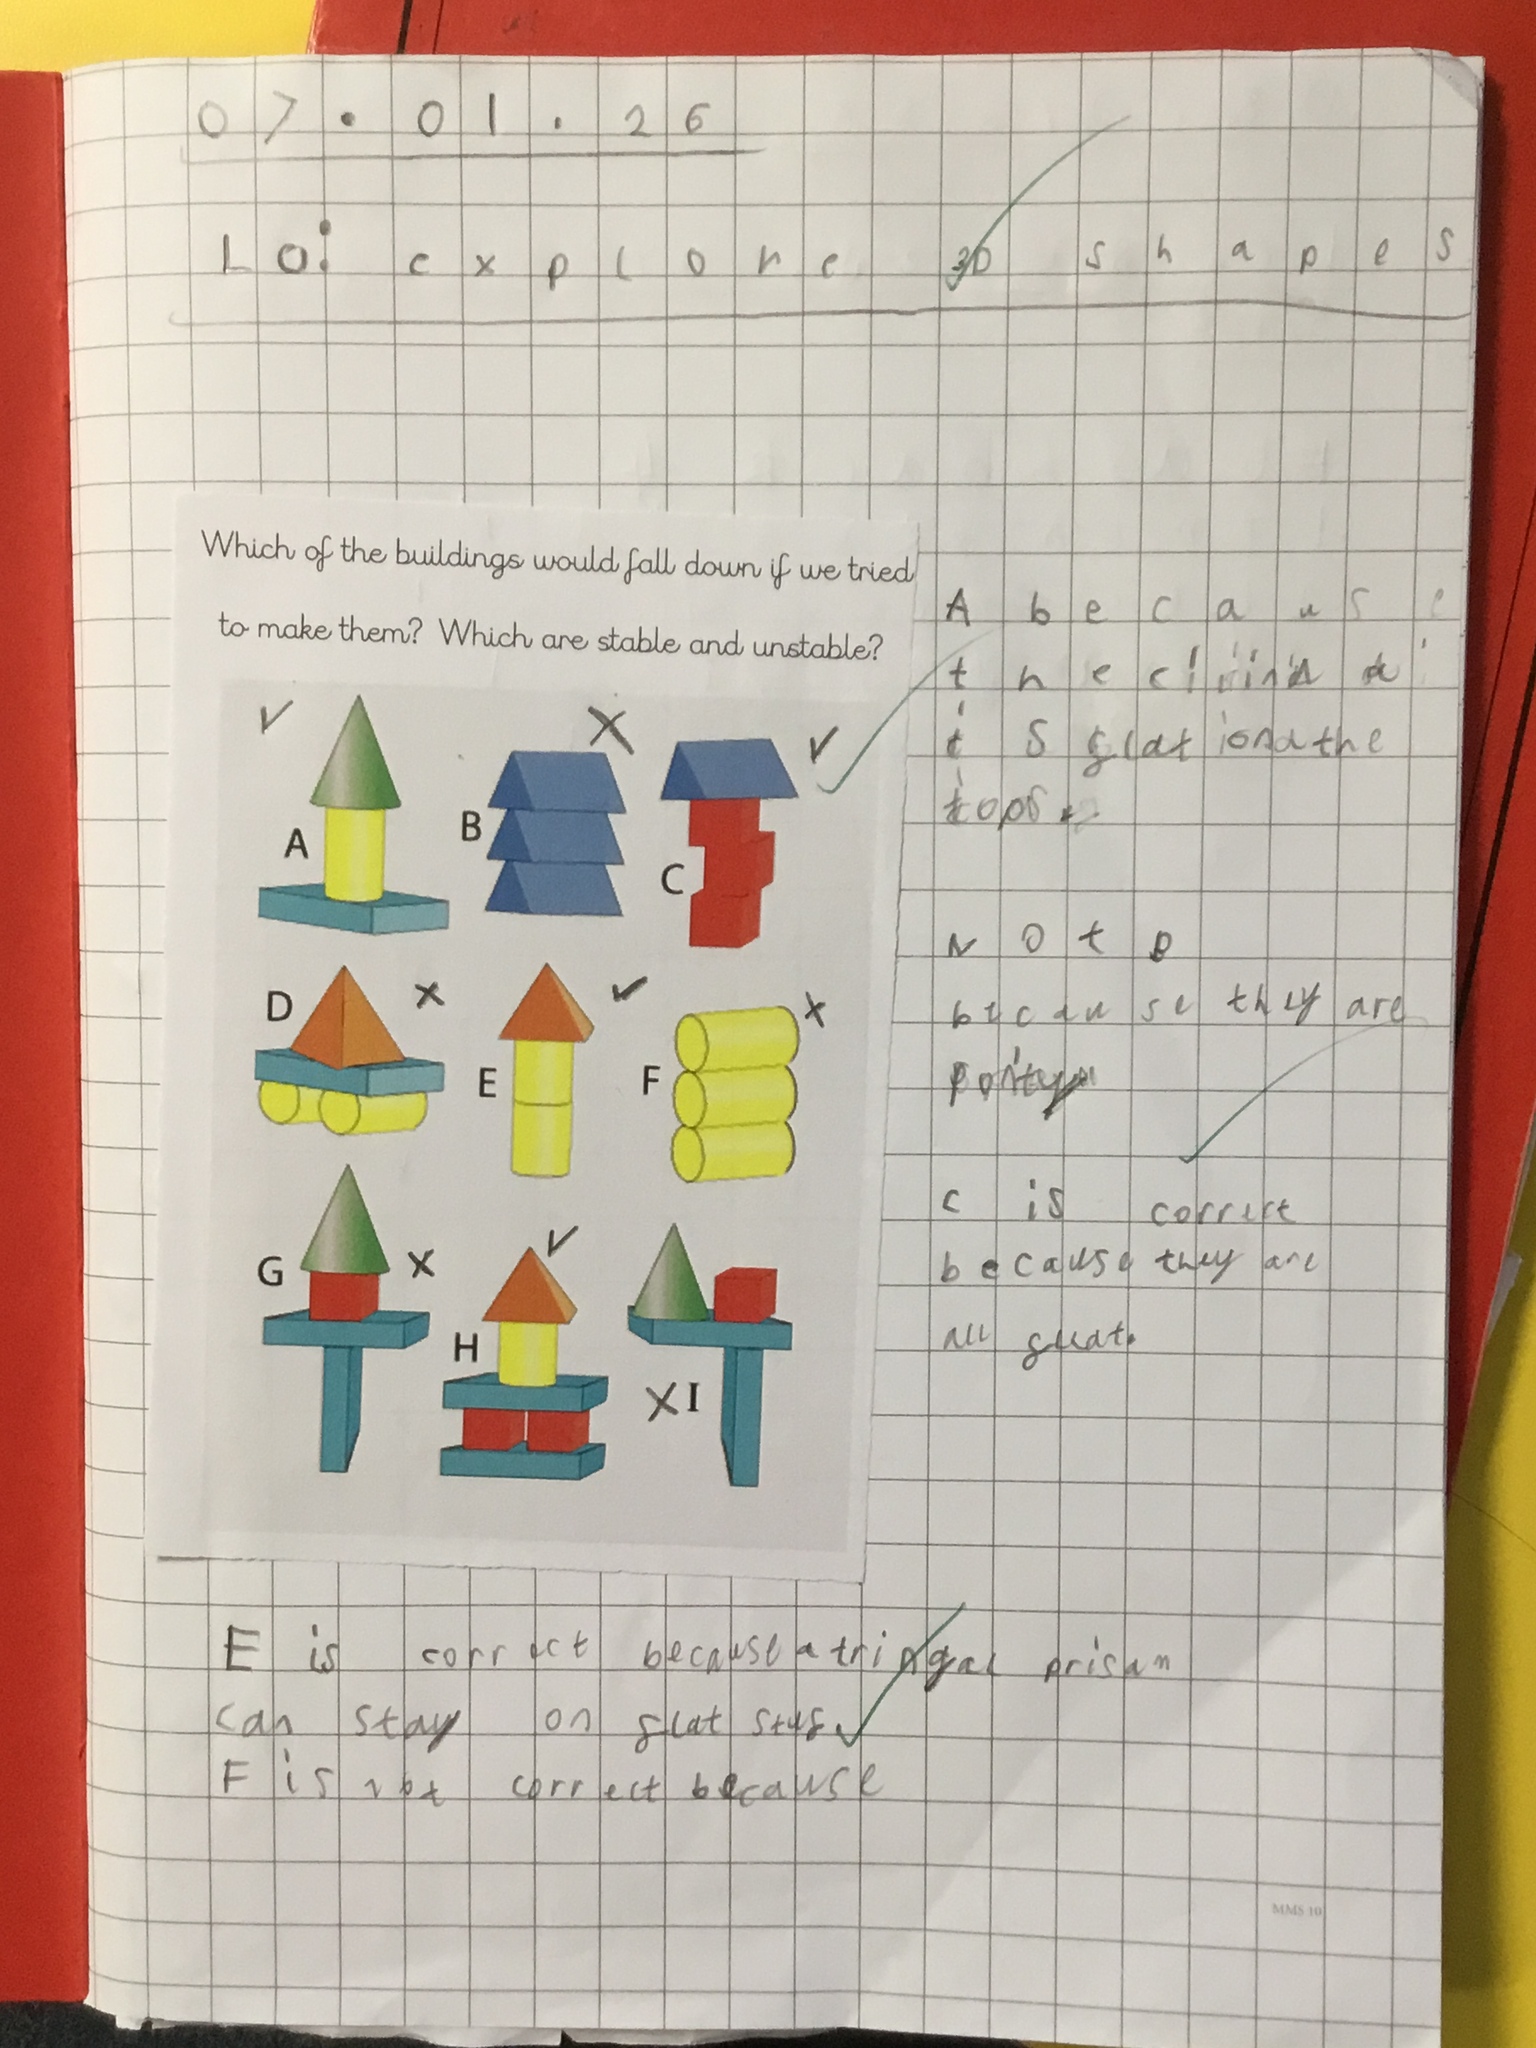 07.01.26
LO: explore 3D shapes
Which of the buildings would fall down if we tried
to make them? Which are stable and unstable?
A
B
C
D
E
F
G
H
I
A because
the
is flat the
top.
Not B
because they are
C is correct
because they are
all flat.
E is correct because a
can stay on flat stuf.
F is not correct because
MMS 10